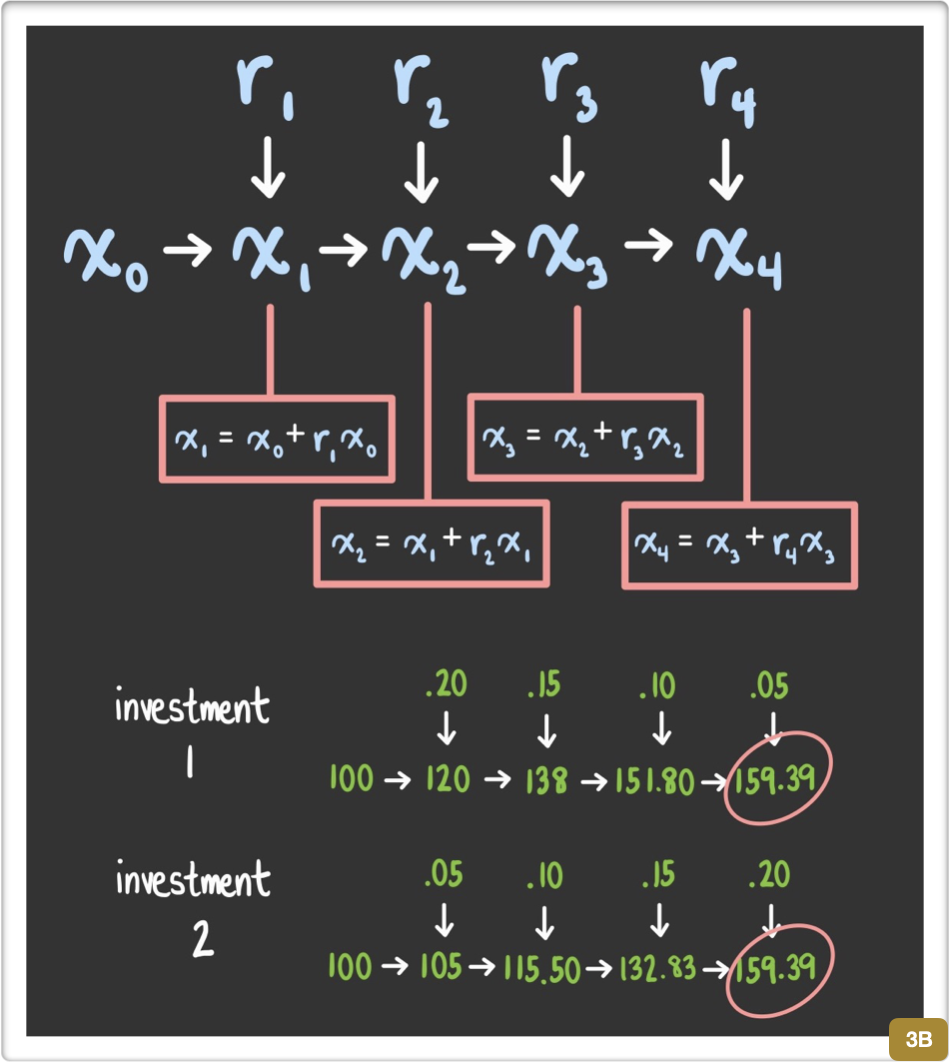 r₁ r₂ r₃ r₄
↓ ↓ ↓ ↓
x₀ → x₁ → x₂ → x₃ → x₄
x₁ = x₀ + r₁x₀
x₃ = x₂ + r₃x₂
x₂ = x₁ + r₂x₁
x₄ = x₃ + r₄x₃
investment
1
.20 .15 .10 .05
↓ ↓ ↓ ↓
100 → 120 → 138 → 151.80 → 159.39
investment
2
.05 .10 .15 .20
↓ ↓ ↓ ↓
100 → 105 → 115.50 → 132.83 → 159.39
3B